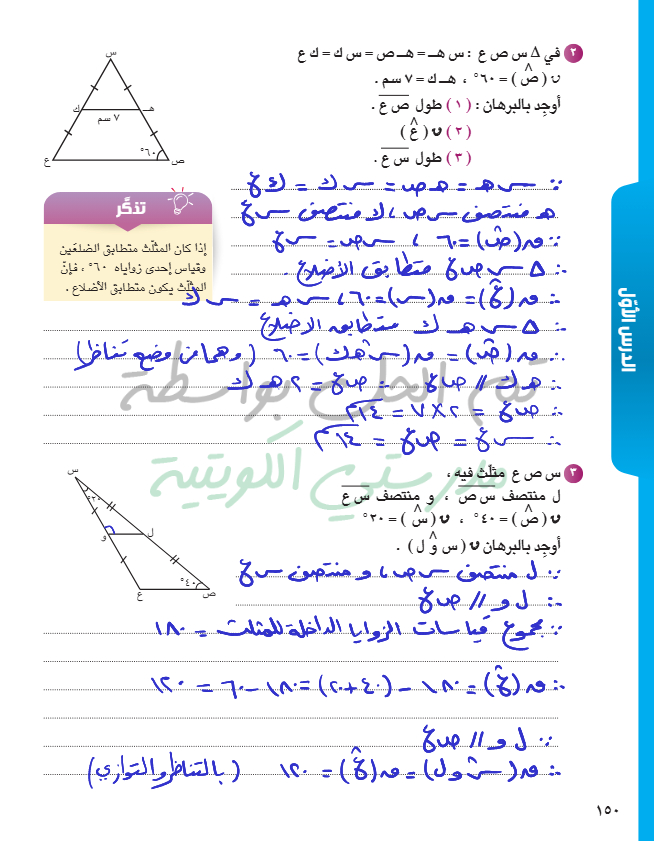 ٢ في △ س ص ع : س هـ = هـ ص = س ك = ك ع
ن ( ص̂ ) = ٦٠° ، هـ ك = ٧ سم .
أوجِد بالبرهان : ( ١ ) طول ص ع .
( ٢ ) ن ( ع̂ )
( ٣ ) طول س ع .
س
ك
هـ
٧ سم
٦٠°
ع
ص
تذكَّر
إذا كان المثلّث متطابق الضلعَين
وقياس إحدى زواياه ٦٠° ، فإنّ
المثلّث يكون متطابق الأضلاع .
∵ س هـ = هـ ص = س ك = ك ع
هـ منتصف س ص ، ك منتصف س ع
∵ ق (ص̂) = ٦٠ ، س ص = س ع
∴ △ س ص ع متطابق الأضلاع .
∴ ق (ع̂) = ق (س) = ٦٠ ، س هـ = س ك
∴ △ س هـ ك متطابق الاضلاع
∴ ق (ص̂) = ق (س هـ̂ ك) = ٦٠ ( وهما من وضع تناظر )
∴ هـ ك // ص ع ∴ ص ع = ٢ هـ ك
∴ ص ع = ٢ × ٧ = ١٤ سم
∴ س ع = ص ع = ١٤ سم
تم الحل بواسطة
مدرستي الكويتية
٣ س ص ع مثلّث فيه ،
ل منتصف س ص ، و منتصف س ع
ن ( ص̂ ) = ٤٠° ، ن ( س̂ ) = ٢٠°
أوجِد بالبرهان ن ( س و̂ ل ) .
س
٢٠°
و
ل
٤٠°
ع
ص
∵ ل منتصف س ص ، و منتصف س ع
∴ ل و // ص ع
∵ مجموع قياسات الزوايا الداخلة للمثلث = ١٨٠
∴ ق (ع̂) = ١٨٠ - (٤٠ + ٢٠) = ١٨٠ - ٦٠ = ١٢٠
∵ ل و // ص ع
∴ ق ( س و̂ ل ) = ق (ع̂) = ١٢٠ ( بالتناظر والتوازي )
الدرس الأوّل
١٥٠